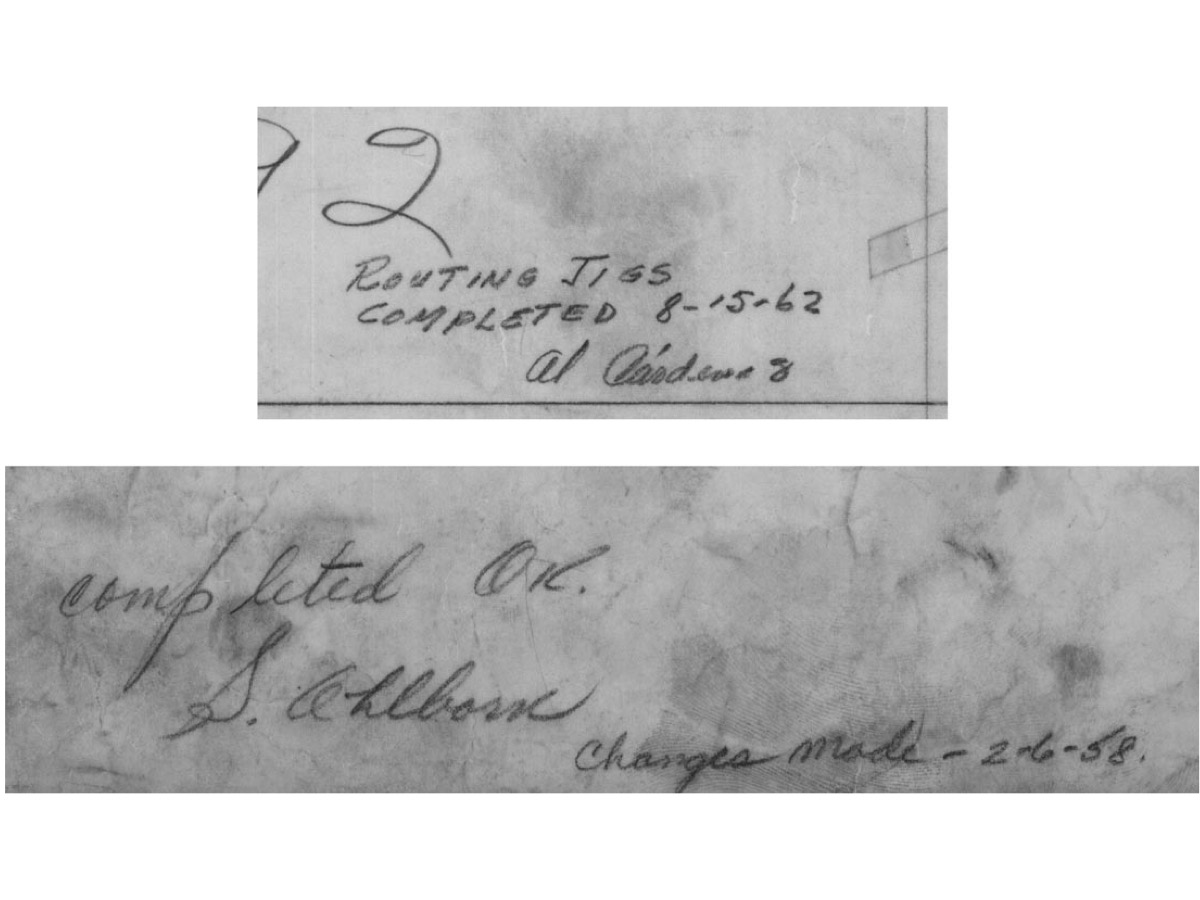 92
ROUTING JIGS
COMPLETED 8-15-62
Al Cárdenas
completed OK.
S. Ahlborn
Changes made - 2-6-58.